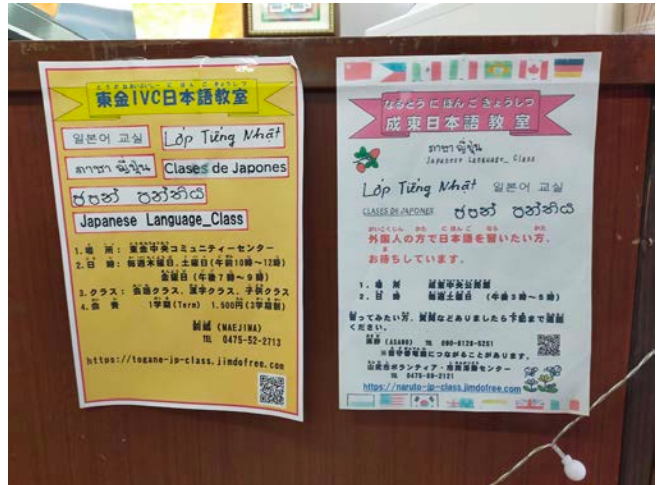 とうがねあいぶいしーにほんごきょうしつ
東金IVC日本語教室
일본어 교실
Lớp Tiếng Nhật
ภาษาญี่ปุ่น
Clases de Japones
ජපන් පන්තිය
Japanese Language_Class
1. 場所: 東金中央コミュニティーセンター
2. 日時: 毎週木曜日、土曜日(午前10時~12時)
金曜日(午後7時~9時)
3. クラス: 会話クラス、漢字クラス、子供クラス
4. 会費 1学期(Term) 1,500円(3学期制)
前嶋 (MAEJIMA)
TEL 0475-52-2713
https://togane-jp-class.jimdofree.com
なるとうにほんごきょうしつ
成東日本語教室
ภาษาญี่ปุ่น
Japanese Language_Class
Lớp Tiếng Nhật
일본어 교실
CLASES DE JAPONES
ජපන් පන්තිය
がいこくじん かた にほんご なら かた
外国人の方で日本語を習いたい方、
お待ちしています。
1. 場所 成東中央公民館
2. 日時 毎週土曜日 (午後3時~5時)
習ってみたい方、質問などありましたら下記まで連絡
ください。
(ASANO) TEL 090-6128-5251
※留守番電話につながることがあります。
山武市ボランティア・市民活動センター
TEL 0475-89-2121
https://naruto-jp-class.jimdofree.com